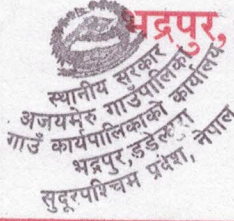 भद्रपुर,
स्थानीय सरकार
अजयमेरु गाउँपालिका
गाउँ कार्यपालिकाको कार्यालय
भद्रपुर, डडेल्धुरा
सुदूरपश्चिम प्रदेश, नेपाल